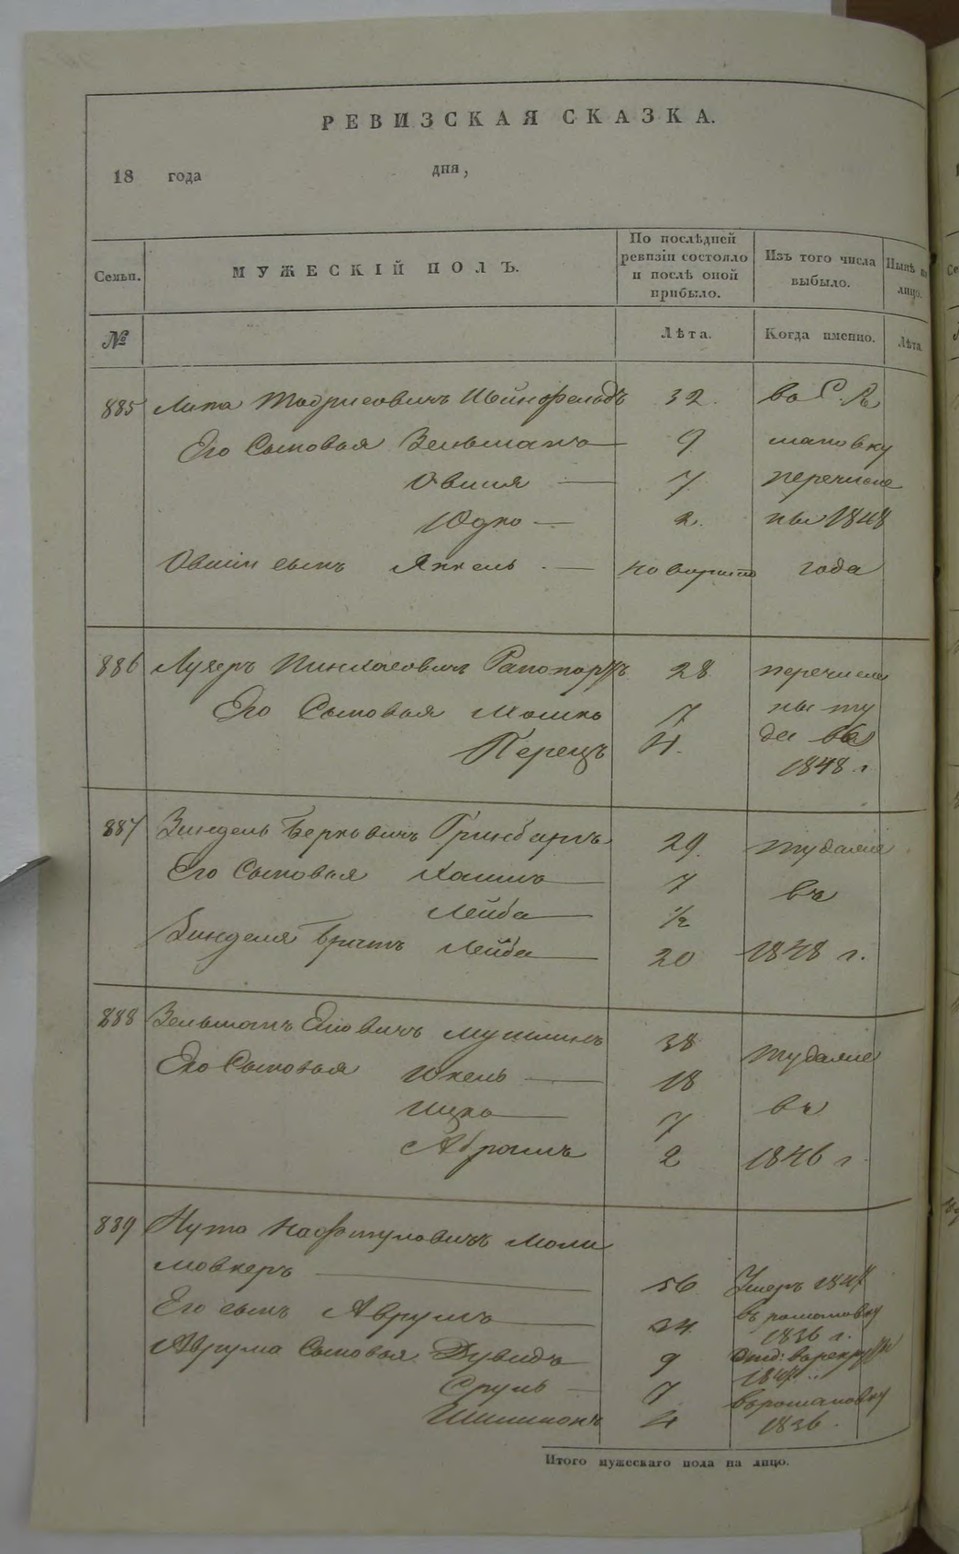 РЕВИЗСКАЯ СКАЗКА.
18 года дня,
Семьи. МУЖЕСКІЙ ПОЛЪ. По послѣдней ревизіи состояло и послѣ оной прибыло. Изъ того числа выбыло. Нынѣ на лицо.
№ Лѣта. Когда именно. Лѣта
885 Липа 32. въ
Его Сыновья Зельманъ 9 мановку
Овшия 7 перечисле
Юдко 2. ны 1848
Овшіи сынъ Янкель года
886 Пинхасовичъ Рапопортъ 28 перечисле
Его Сыновья Мошко 7 ны ту
Перецъ 4. да въ
1848 г
887 Зиндель Берковичъ Гринбаргъ 29. тудаже
Его Сыновья Хаимъ 7 въ
Лейба ½
Зинделя братъ Лейба 20 1848 г.
888 Зельманъ 38 тудаже
Его Сыновья Юкель 18
Ицко 7 въ
Абрамъ 2 1846 г
889 Нута Нафтуловичъ
56 Умеръ
Его сынъ Аврумъ 24 въ романовку
1836 г.
Аврума Сыновья Дувидъ 9
Сруль 7 въ романовку
4 1836.
Итого мужескаго пола на лицо.